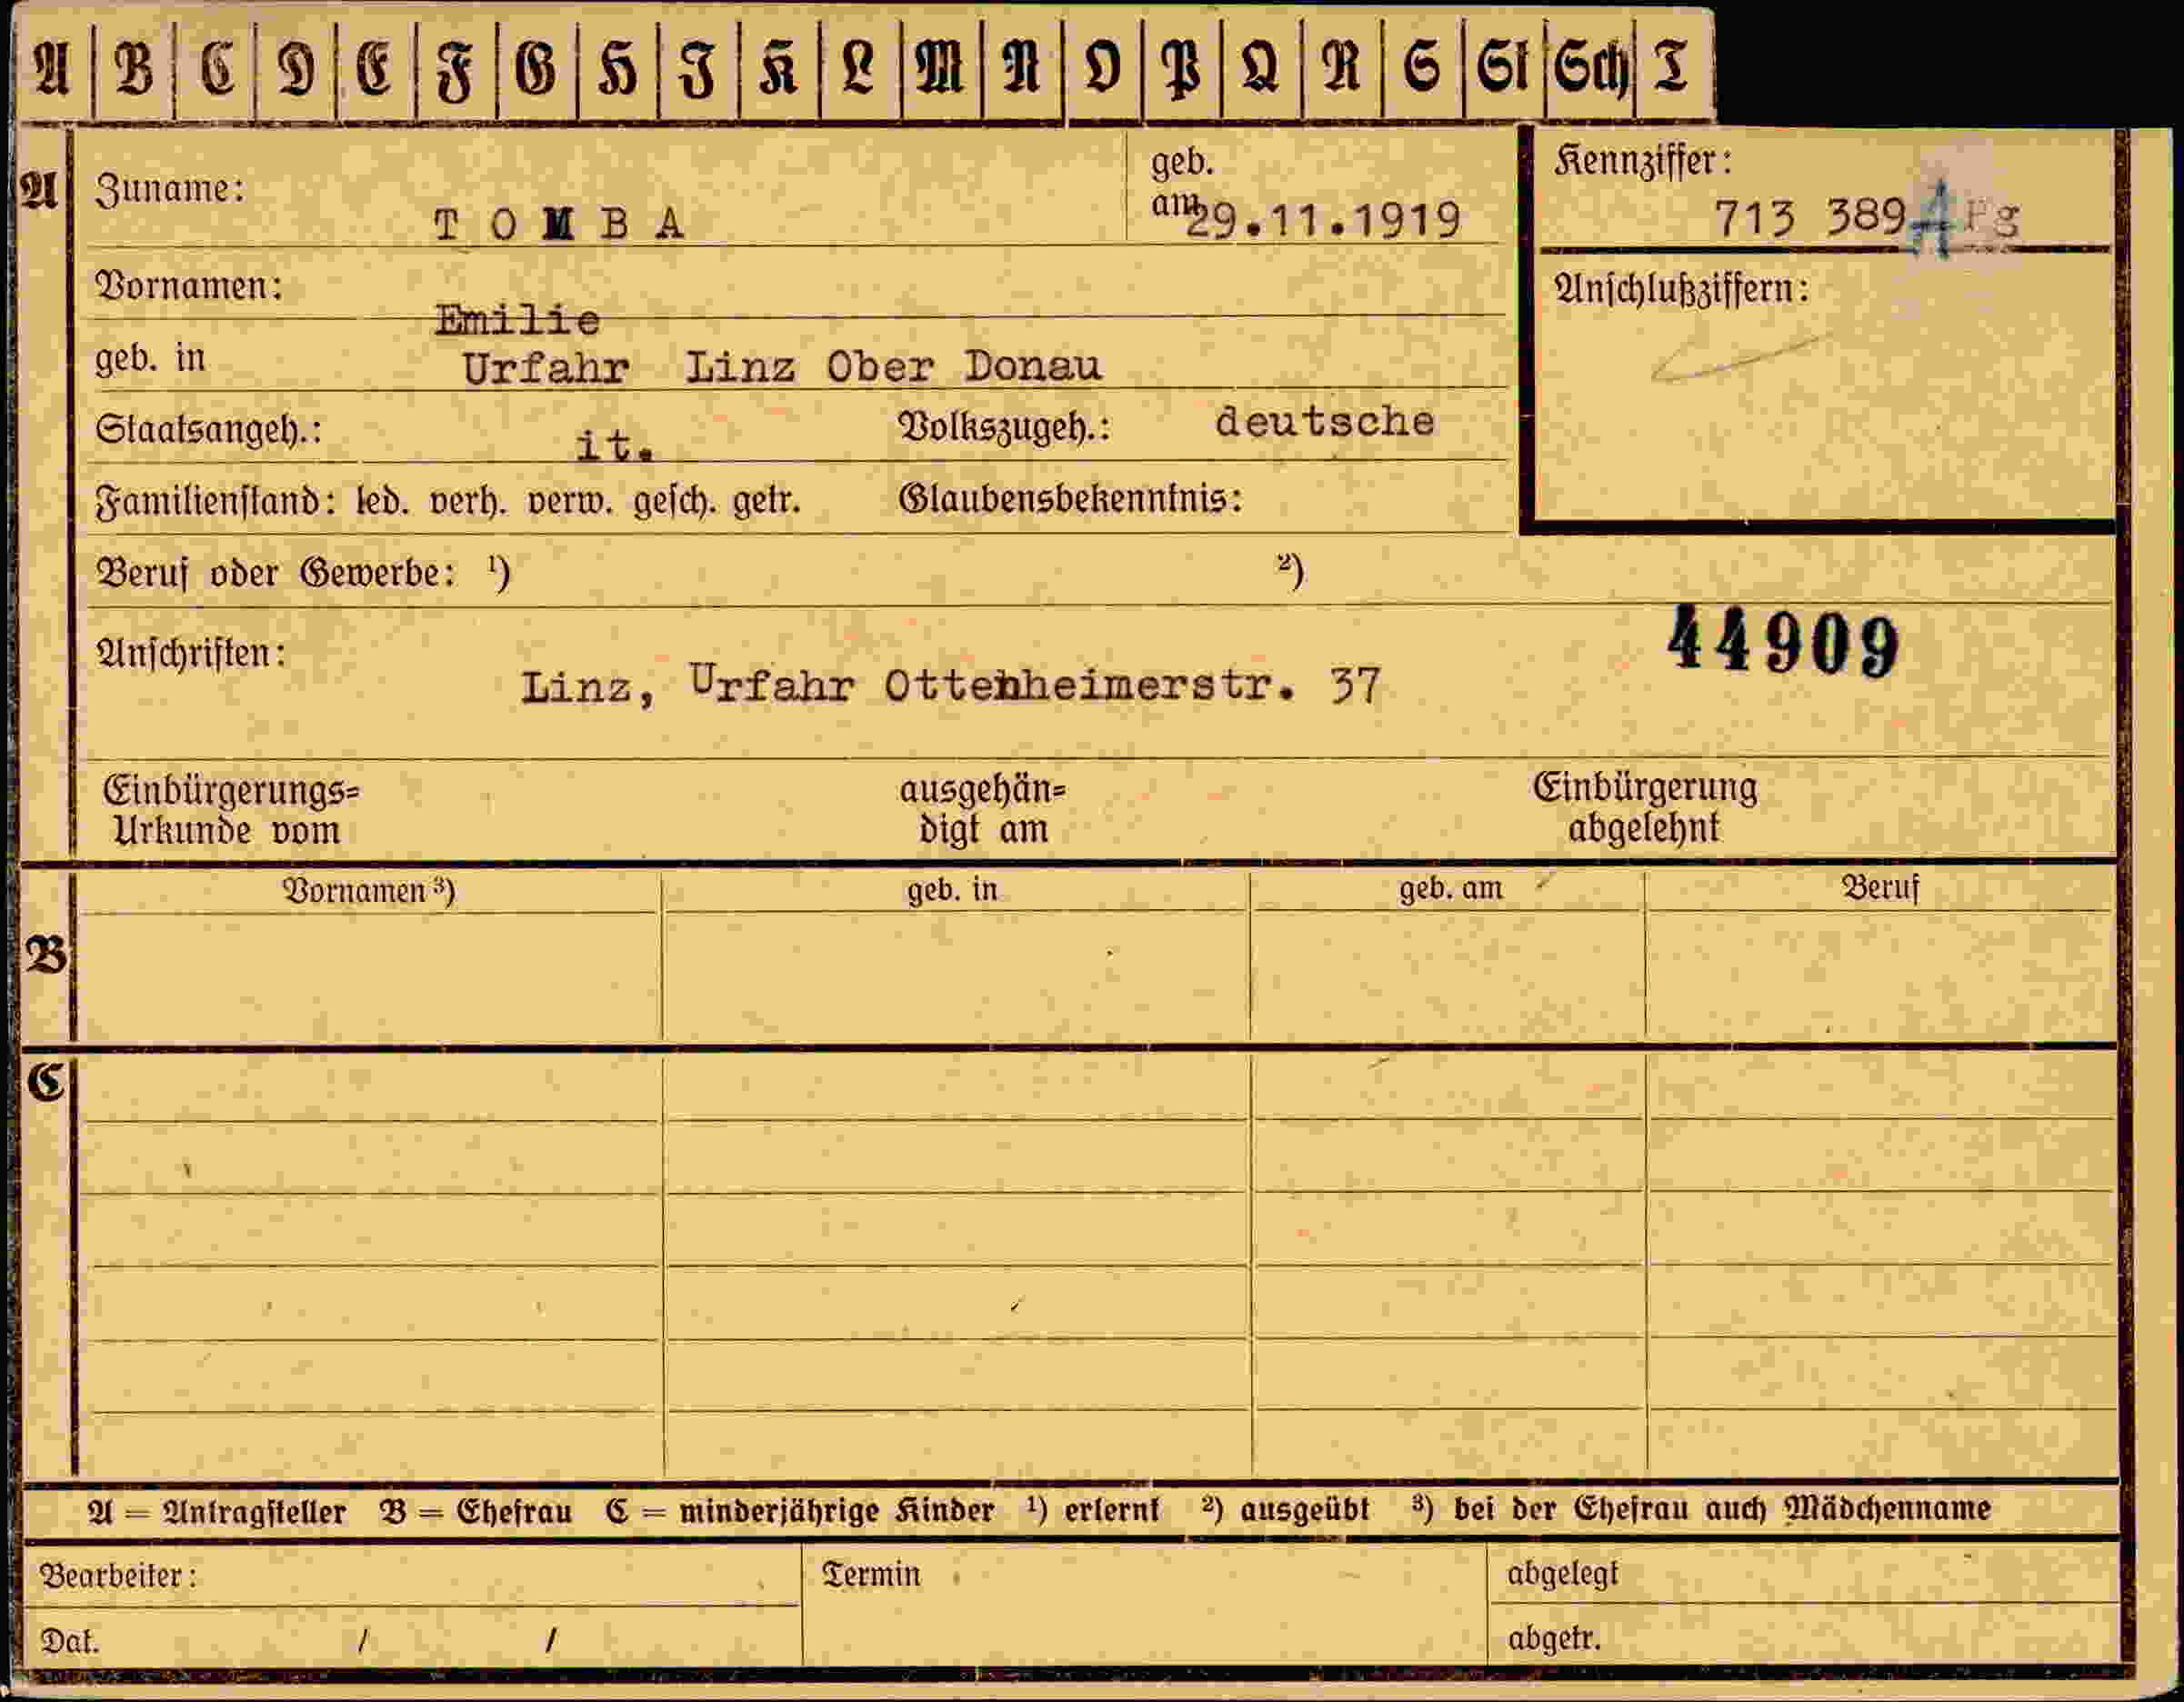 A B C D E F G H I K L M N O P Q R S St Sch T
A Zuname: TOMBA geb. am 29.11.1919 Kennziffer: 713 389 A Pg
Vornamen: Emilie Anschlußziffern:
geb. in Urfahr Linz Ober Donau
Staatsangeh.: it. Volkszugeh.: deutsche
Familienstand: led. verh. verw. gesch. getr. Glaubensbekenntnis:
Beruf oder Gewerbe: ¹) ²)
44909
Anschriften: Linz, Urfahr Ottenheimerstr. 37
Einbürgerungs= ausgehän= Einbürgerung
Urkunde vom digt am abgelehnt
Vornamen ³) geb. in geb. am Beruf
B
C
A = Antragsteller B = Ehefrau C = minderjährige Kinder ¹) erlernt ²) ausgeübt ³) bei der Ehefrau auch Mädchenname
Bearbeiter: Termin abgelegt
Dat. / / abgetr.